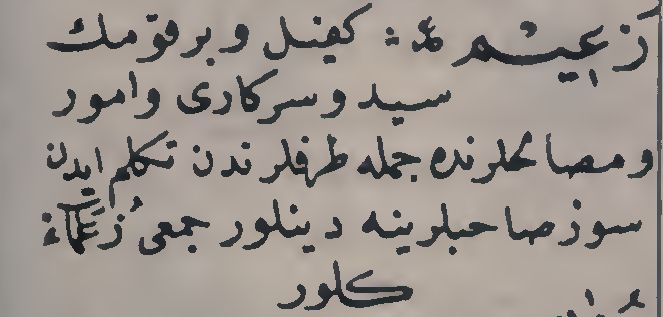 زعيم ع : كفيل و بر قومك
سيد و سركارى و امور
و مصالحلرنده جمله طرفلرندن تكلم ايدن
سوز صاحبلرينه دينلور جمعى زُعَمَاءْ
كلور